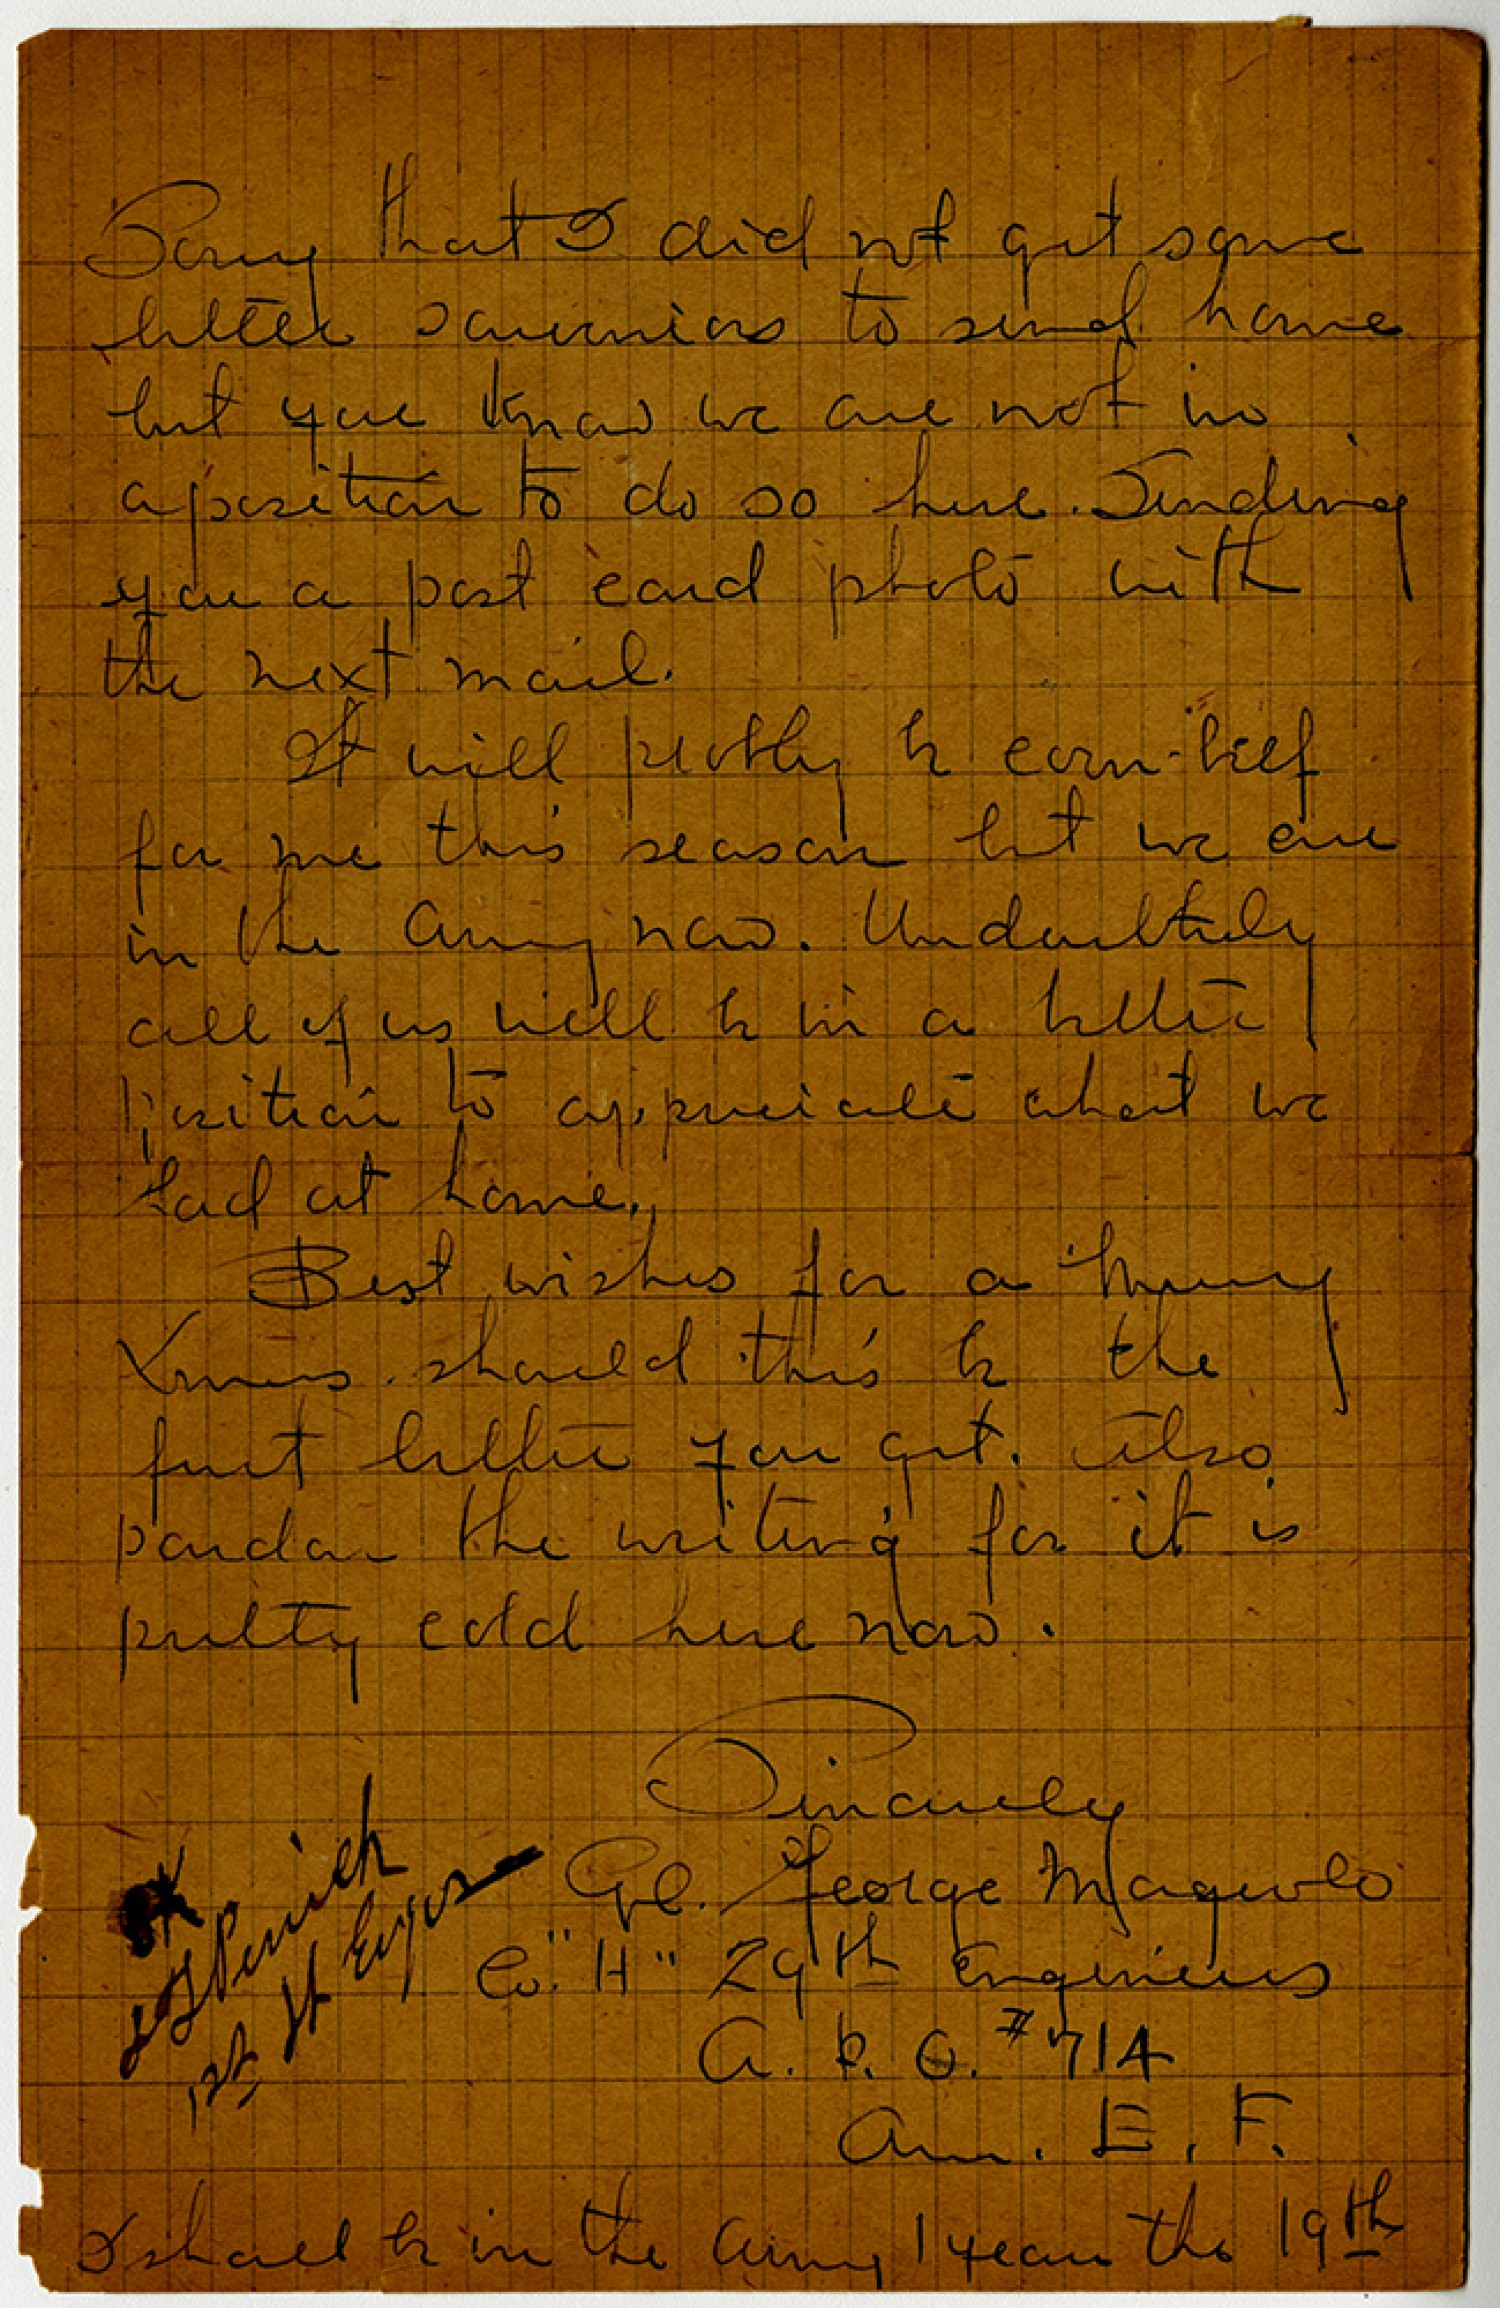 Sorry that I did not get some
better souveniors to send home
but you know we are not in
a position to do so here. Sending
you a post card photo with
the next mail.
It will probly be corn-beef
for me this season but we are
in the Army now. Undoubtely
all of us will be in a better
position to appreciate what we
had at home.
Best wishes for a Merry
Xmas should this be the
first letter you get. Also
pardon the writing for it is
pretty cold here now.
Sincerely
George
Co. "H" 29th Engineers
A. P. O. #714
Am. E. F.
OK
1st Lt Engrs
I shall be in the Army 1 year the 19th